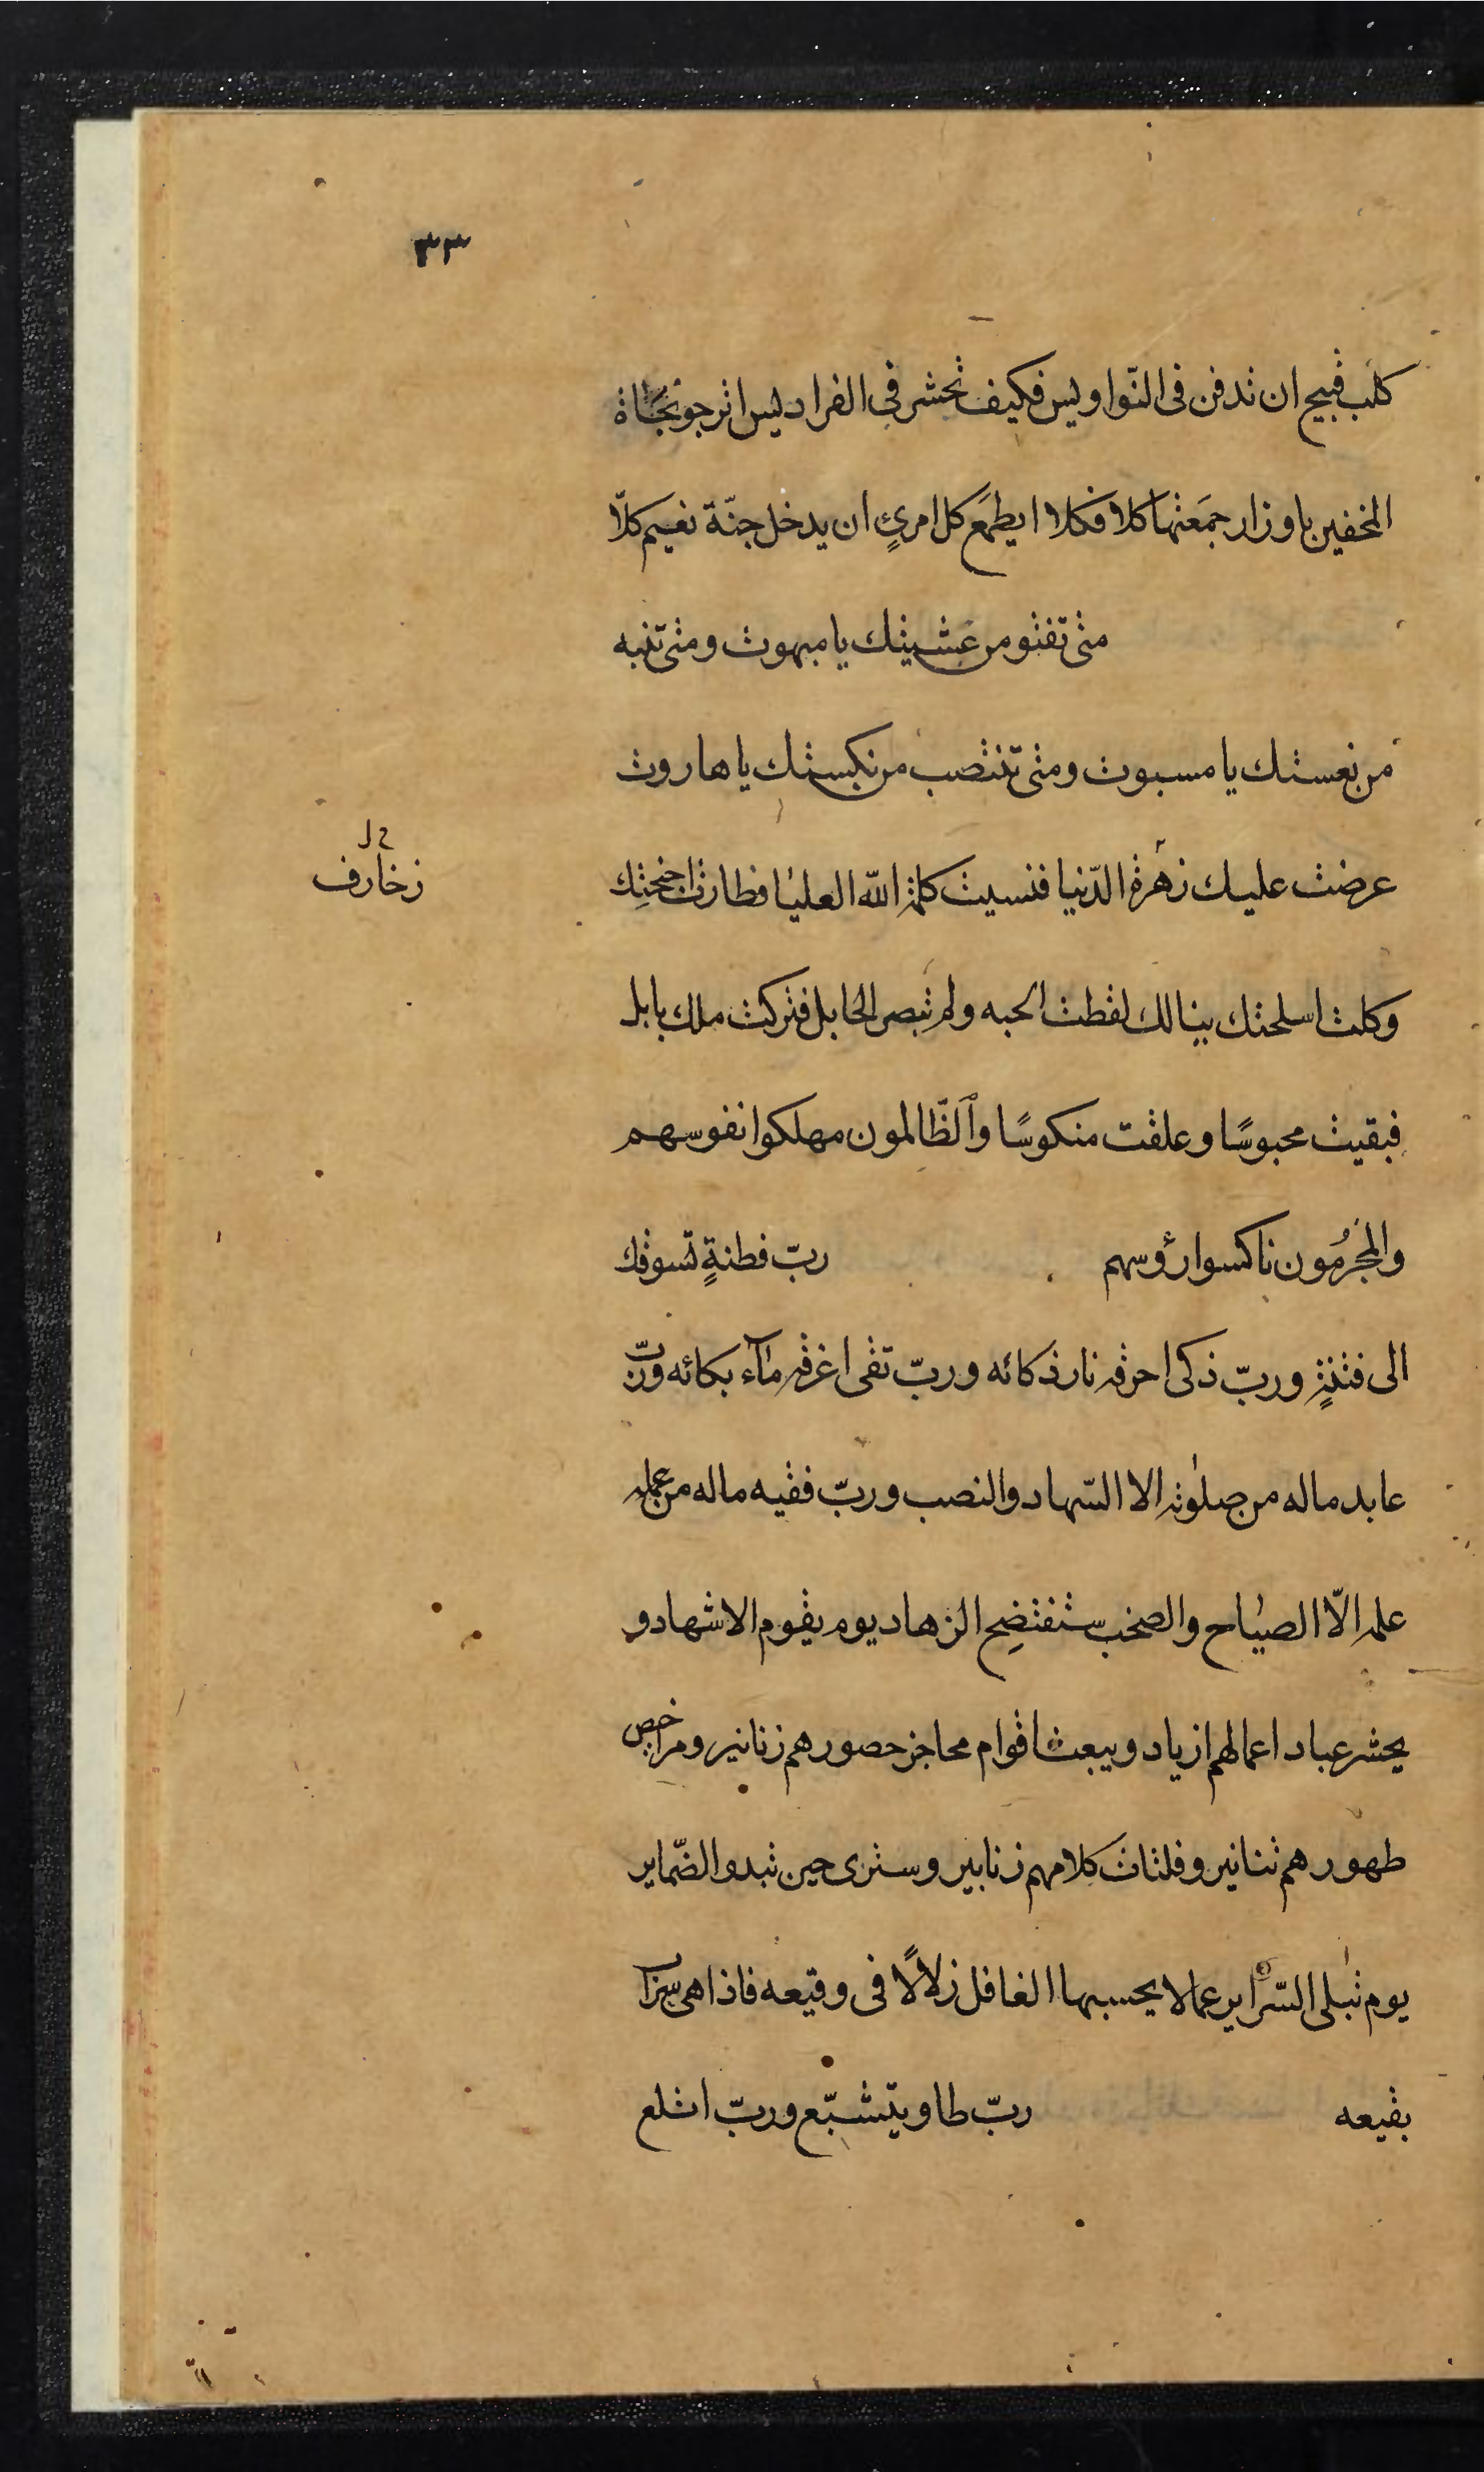 ٣٣
كلب قبيح ان تدفن فى النّواويس فكيف تحشر فى الفراديس اترجو نجاة
المخفين باوزار جمَعتها كلا فكلا ايطمَع كل امرئٍ ان يدخل جنّة نعيم كلّا
متى تفثو من غشيتك يا مبهوت ومتى تنبه
من نعستك يا مسبوت ومتى تنتصب من نكستك يا هاروت
عرضت عليك زهرة الدّنيا فنسيت كلمة الله العليا فطارت اجنحتِك
زخارف
وكلت اسلحتك بينا لك لقطت الحبه ولم تبصر الحابل فتركت ملك بابل
فبقيت محبوسًا وعلقت منكوسًا وٱلظّالمون مهلكوا نفوسهم
والمجرُمون ناكسوا رؤسهم ربّ فطنةٍ تسوقك
الى فتنةٍ وربّ ذكى احرقه نار ذكائه وربّ تقى اغرقه مآء بكائه وربّ
عابد ماله من صلوٰته الا السّهاد والنصب وربّ فقيه ماله من عمله
علمه الّا الصياح والصخب ستفتضِح الزهاد يوم يقوم الاشهاد و
يحشر عباد اعمالهم ازياد ويبعث اقوام محاجز حصورهم زنانير ومراحيض
طهورهم تنانير وفلتات كلامهم زنابير وسترى حين تبدو الضّماير
يوم تبلى السّراير عمالا يحسبها الغافل زلالًا فى وقيعه فاذا هى سرابًا
بقيعه ربّ طاو يتّشبّع وربّ اتلع